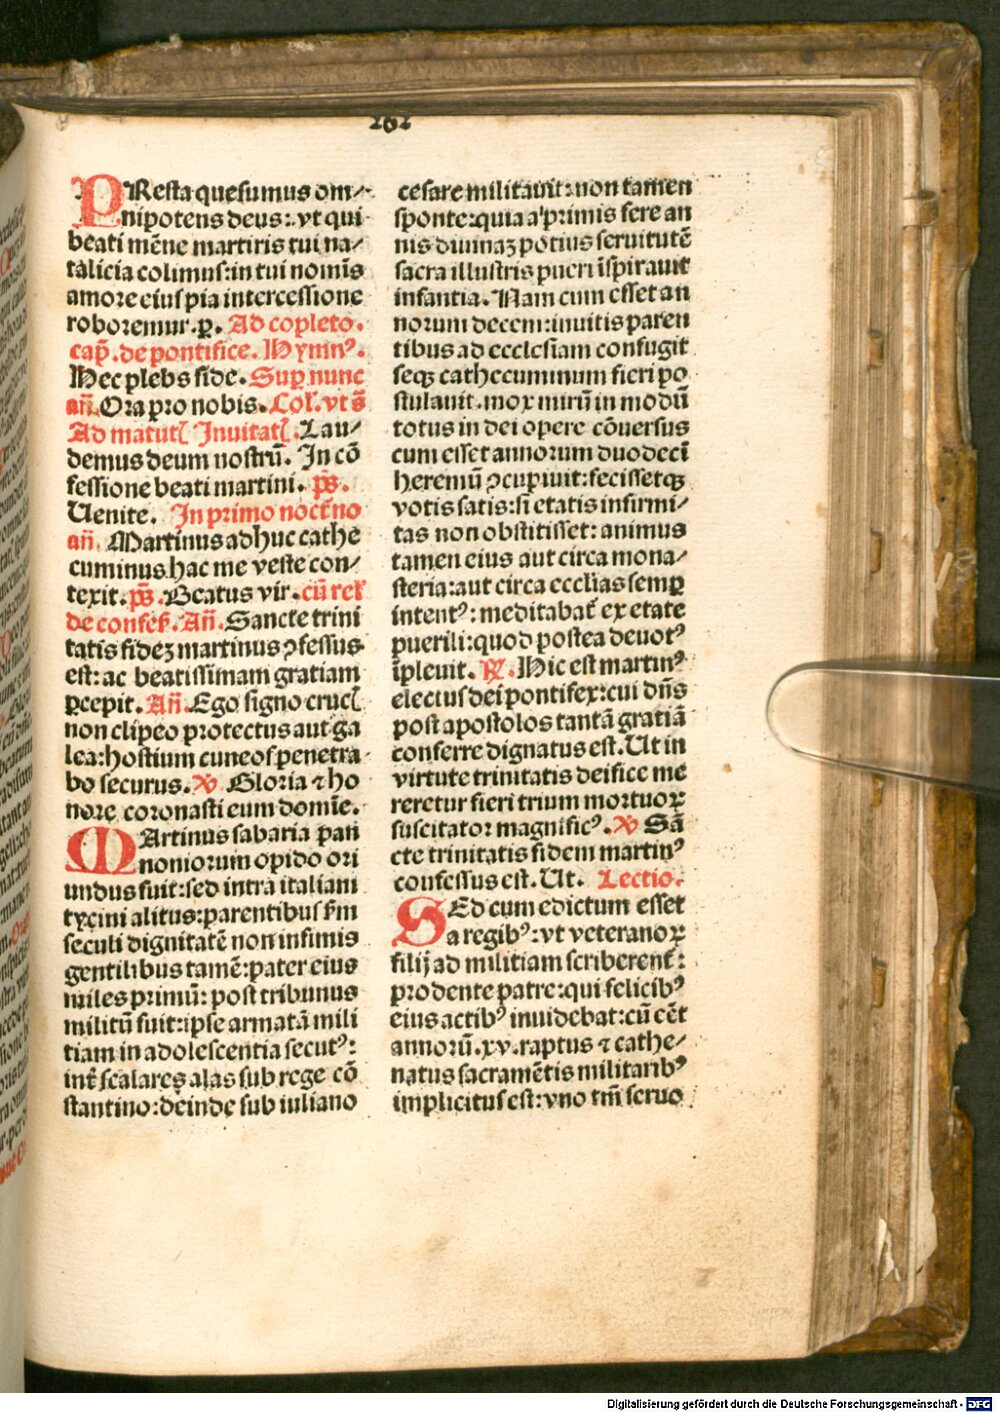 262
PResta quesumus om⸗
nipotens deus: vt qui
beati mēne martiris tui na⸗
talicia colimus: in tui nomīs
amore eius pia intercessione
roboremur. ꝑ. Ad cōpleto.
capͥ. de pontifice. Hymnꝰ.
Hec plebs fide. Suꝑ nunc
añ. Ora pro nobis. Col'. vt s̄
Ad matutꝭ Inuitatꝭ. Lau⸗
demus deum nostrū. In cō
fessione beati martini. p̄s.
Uenite. In primo noct̄no
añ. Martinus adhuc cathe
cuminus hac me veste con⸗
texit. p̄s. Beatus vir. cū rel'
de confes̄. Añ. Sancte trini
tatis fidem martinus ꝯfessus
est: ac beatissimam gratiam
ꝑcepit. Añ. Ego signo crucꝭ
non clipeo protectus aut ga
lea: hostium cuneos penetra
bo securus. ℣ Gloria ⁊ ho
nore coronasti eum domīe.
MArtinus sabaria pan
noniorum opido ori
undus fuit: sed intra italiam
tycini alitus: parentibus s̄m
seculi dignitatē non infimis
gentilibus tamē: pater eius
miles primū: post tribunus
militū fuit: ipse armatā mili
tiam in adolescentia secutꝰ:
int̄ scalares alas sub rege cō
stantino: deinde sub iuliano
cesare militauit: non tamen
sponte: quia a primis fere an
nis diuinaꝫ potius seruitutē
sacra illustris pueri īspirauit
infantia. Nam cum esset an
norum decem: inuitis paren
tibus ad ecclesiam confugit
seqꝫ cathecuminum fieri po
stulauit. mox mirū in modū
totus in dei opere cōuersus
cum esset annorum duodecī
heremū ꝯcupiuit: fecissetqꝫ
votis satis: si etatis infirmi⸗
tas non obstitisset: animus
tamen eius aut circa mona⸗
steria: aut circa ecclīas semꝑ
intentꝰ: meditabat̄ ex etate
puerili: quod postea deuotꝰ
īpleuit. ℟. Hic est martinꝰ
electus dei pontifex: cui dn̄s
post apostolos tantā gratiā
conferre dignatus est. Ut in
virtute trinitatis deifice me
reretur fieri trium mortuoꝝ
suscitator magnificꝰ. ℣ Sā
cte trinitatis fidem martinꝰ
confessus est. Ut. Lectio.
SEd cum edictum esset
a regibꝰ: vt veteranoꝝ
filij ad militiam scriberent̄:
prodente patre: qui felicibꝰ
eius actibꝰ inuidebat: cū cēt
annorū. xv. raptus ⁊ cathe⸗
natus sacramētis militaribꝰ
implicitus est: vno tm̄ seruo
Digitalisierung gefördert durch die Deutsche Forschungsgemeinschaft - DFG